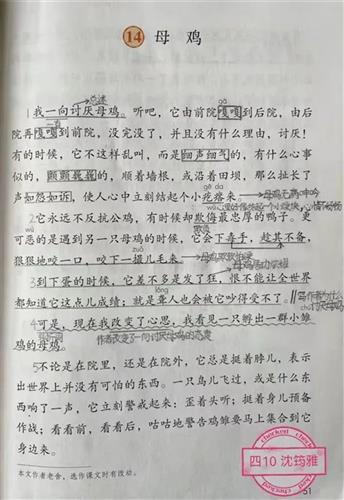 14 母鸡
总述
我一向讨厌母鸡。听吧，它由前院嘎嘎到后院，由后
院再嘎嘎到前院，没完没了，并且没有什么理由，讨厌！
有的时候，它不这样乱叫，而是细声细气的，有什么心事
似的，颤颤巍巍的，顺着墙根，或沿着田坝，那么扯长了
声如怨如诉，使人心中立刻结起个小疙瘩来。
gē da
2它永远不反抗公鸡，有时候却欺侮最忠厚的鸭子。更
可恶的是遇到另一只母鸡的时候，它会下毒手，趁其不备，
狠狠地咬一口，咬下一撮儿毛来。
3到下蛋的时候，它差不多是发了狂，恨不能让全世界
都知道它这点儿成绩；就是聋人也会被它吵得受不了。
4可是，现在我改变了心思，我看见一只孵出一群小雏
鸡的母鸡。
5不论是在院里，还是在院外，它总是挺着脖儿，表示
出世界上并没有可怕的东西。一只鸟儿飞过，或是什么东
西响了一声，它立刻警戒起来：歪着头听；挺着身儿预备
作战；看看前，看看后，咕咕地警告鸡雏要马上集合到它
身边来。
本文作者老舍，选作课文时有改动。
51
checked
四10 沈筠雅
checked